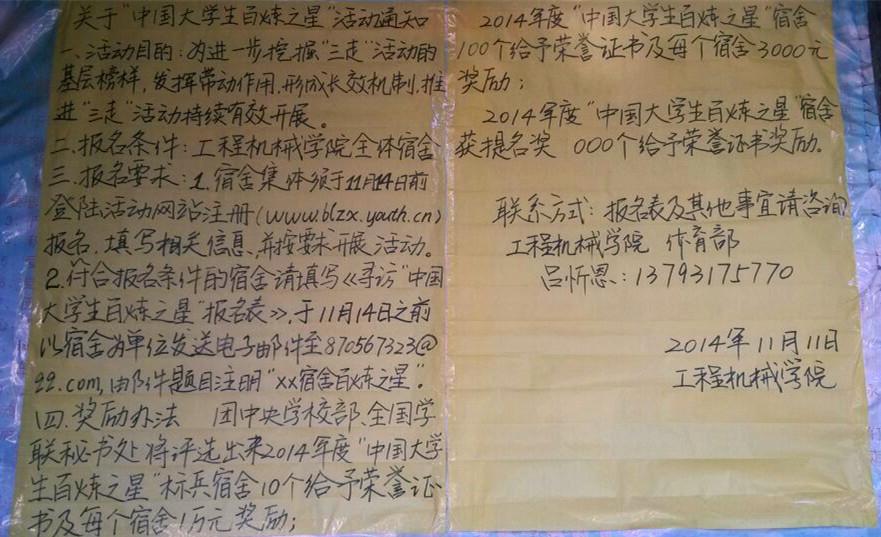 关于"中国大学生百炼之星"活动通知
一、活动目的:为进一步挖掘"三走"活动的
基层榜样,发挥带动作用,形成长效机制,推
进"三走"活动持续有效开展。
二、报名条件:工程机械学院全体宿舍
三、报名要求:1.宿舍集体须于11月14日前
登陆活动网站注册(www.blzx.youth.cn)
报名、填写相关信息、并按要求开展活动。
2.符合报名条件的宿舍请填写《寻访"中国
大学生百炼之星"报名表》,于11月14日之前
以宿舍为单位发送电子邮件至870567323@
qq.com,由邮件题目注明"xx宿舍百炼之星"。
四.奖励办法 团中央学校部、全国学
联秘书处将评选出来2014年度"中国大学
生百炼之星"标兵宿舍10个给予荣誉证
书及每个宿舍1万元奖励;
2014年度"中国大学生百炼之星"宿舍
100个给予荣誉证书及每个宿舍3000元
奖励;
2014年度"中国大学生百炼之星"宿舍
获提名奖 000个给予荣誉证书奖励。
联系方式:报名表及其他事宜请咨询
工程机械学院 体育部
吕忻恩:13793175770
2014年11月11日
工程机械学院